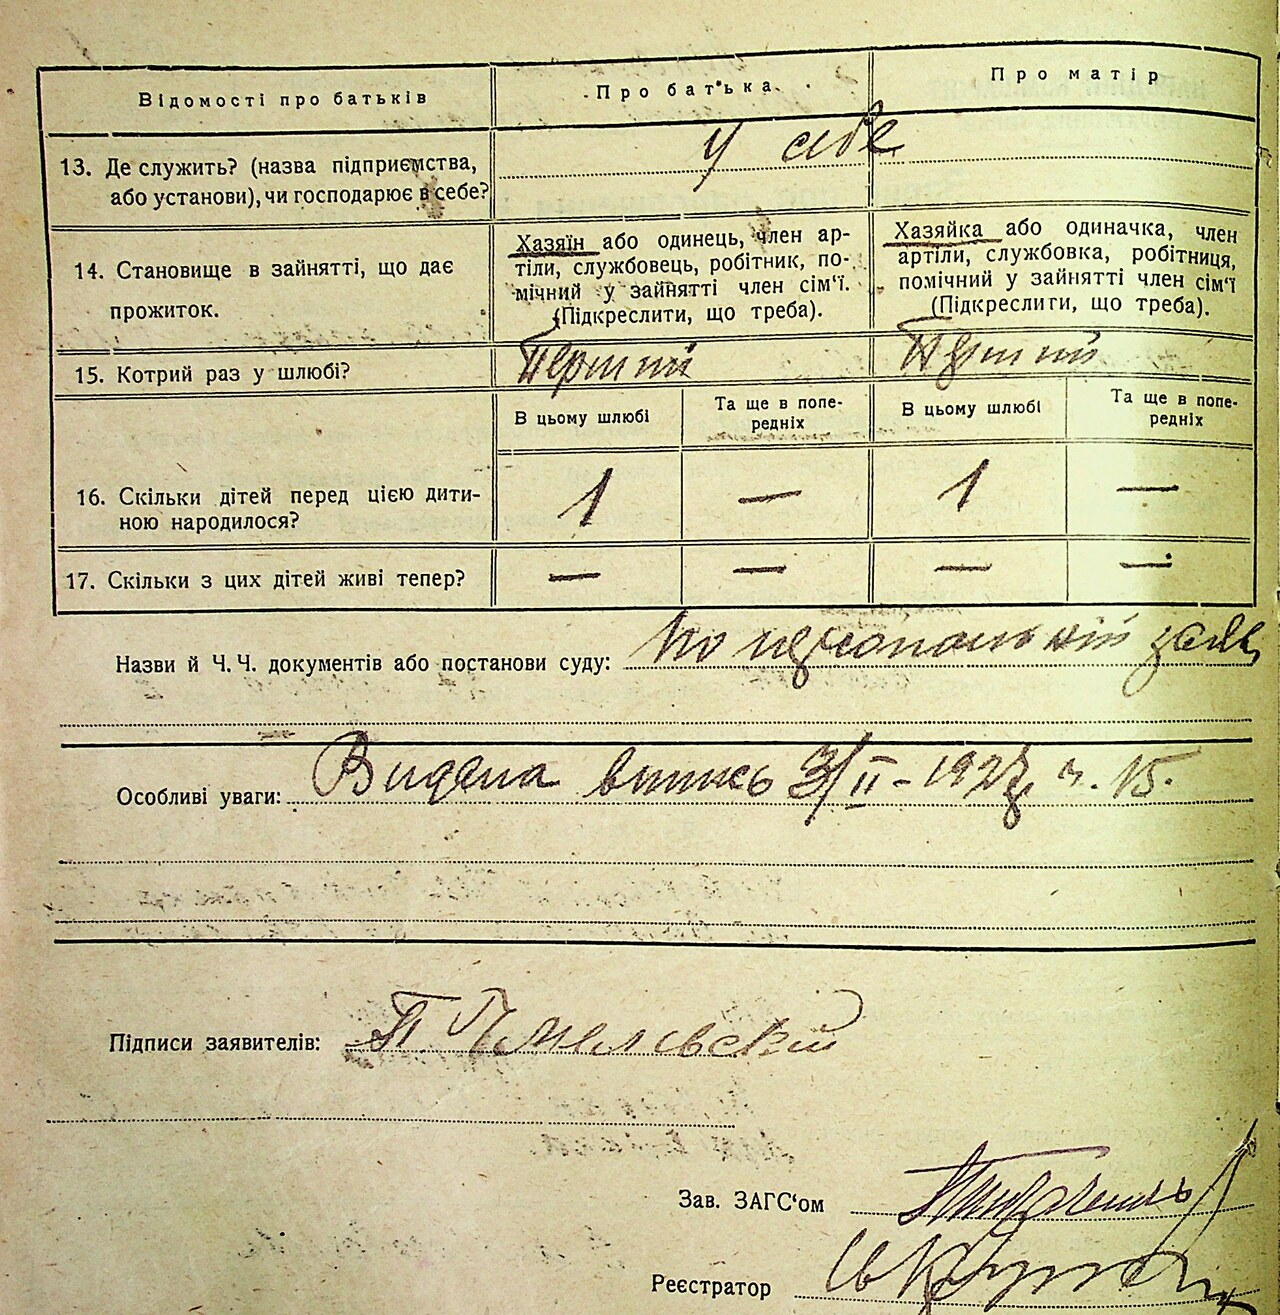 Відомості про батьків
Про батька
Про матір
13. Де служить? (назва підприємства,
або установи), чи господарює в себе?
у себе
14. Становище в зайнятті, що дає
прожиток.
Хазяїн або одинець, член ар-
тіли, службовець, робітник, по-
мічний у зайнятті член сім'ї.
(Підкреслити, що треба).
Хазяйка або одиначка, член
артіли, службовка, робітниця,
помічний у зайнятті член сім'ї
(Підкреслити, що треба).
15. Котрий раз у шлюбі?
Перший
Перший
В цьому шлюбі
Та ще в попе-
редніх
В цьому шлюбі
Та ще в попе-
редніх
16. Скільки дітей перед цією дити-
ною народилося?
1
—
1
—
17. Скільки з цих дітей живі тепер?
—
—
—
—
Назви й Ч. Ч. документів або постанови суду: По персональній заяв
Особливі уваги: Видана випись 3/II - 1927 р. ч. 15.
Підписи заявителів: П.
Зав. ЗАГС'ом
Реєстратор